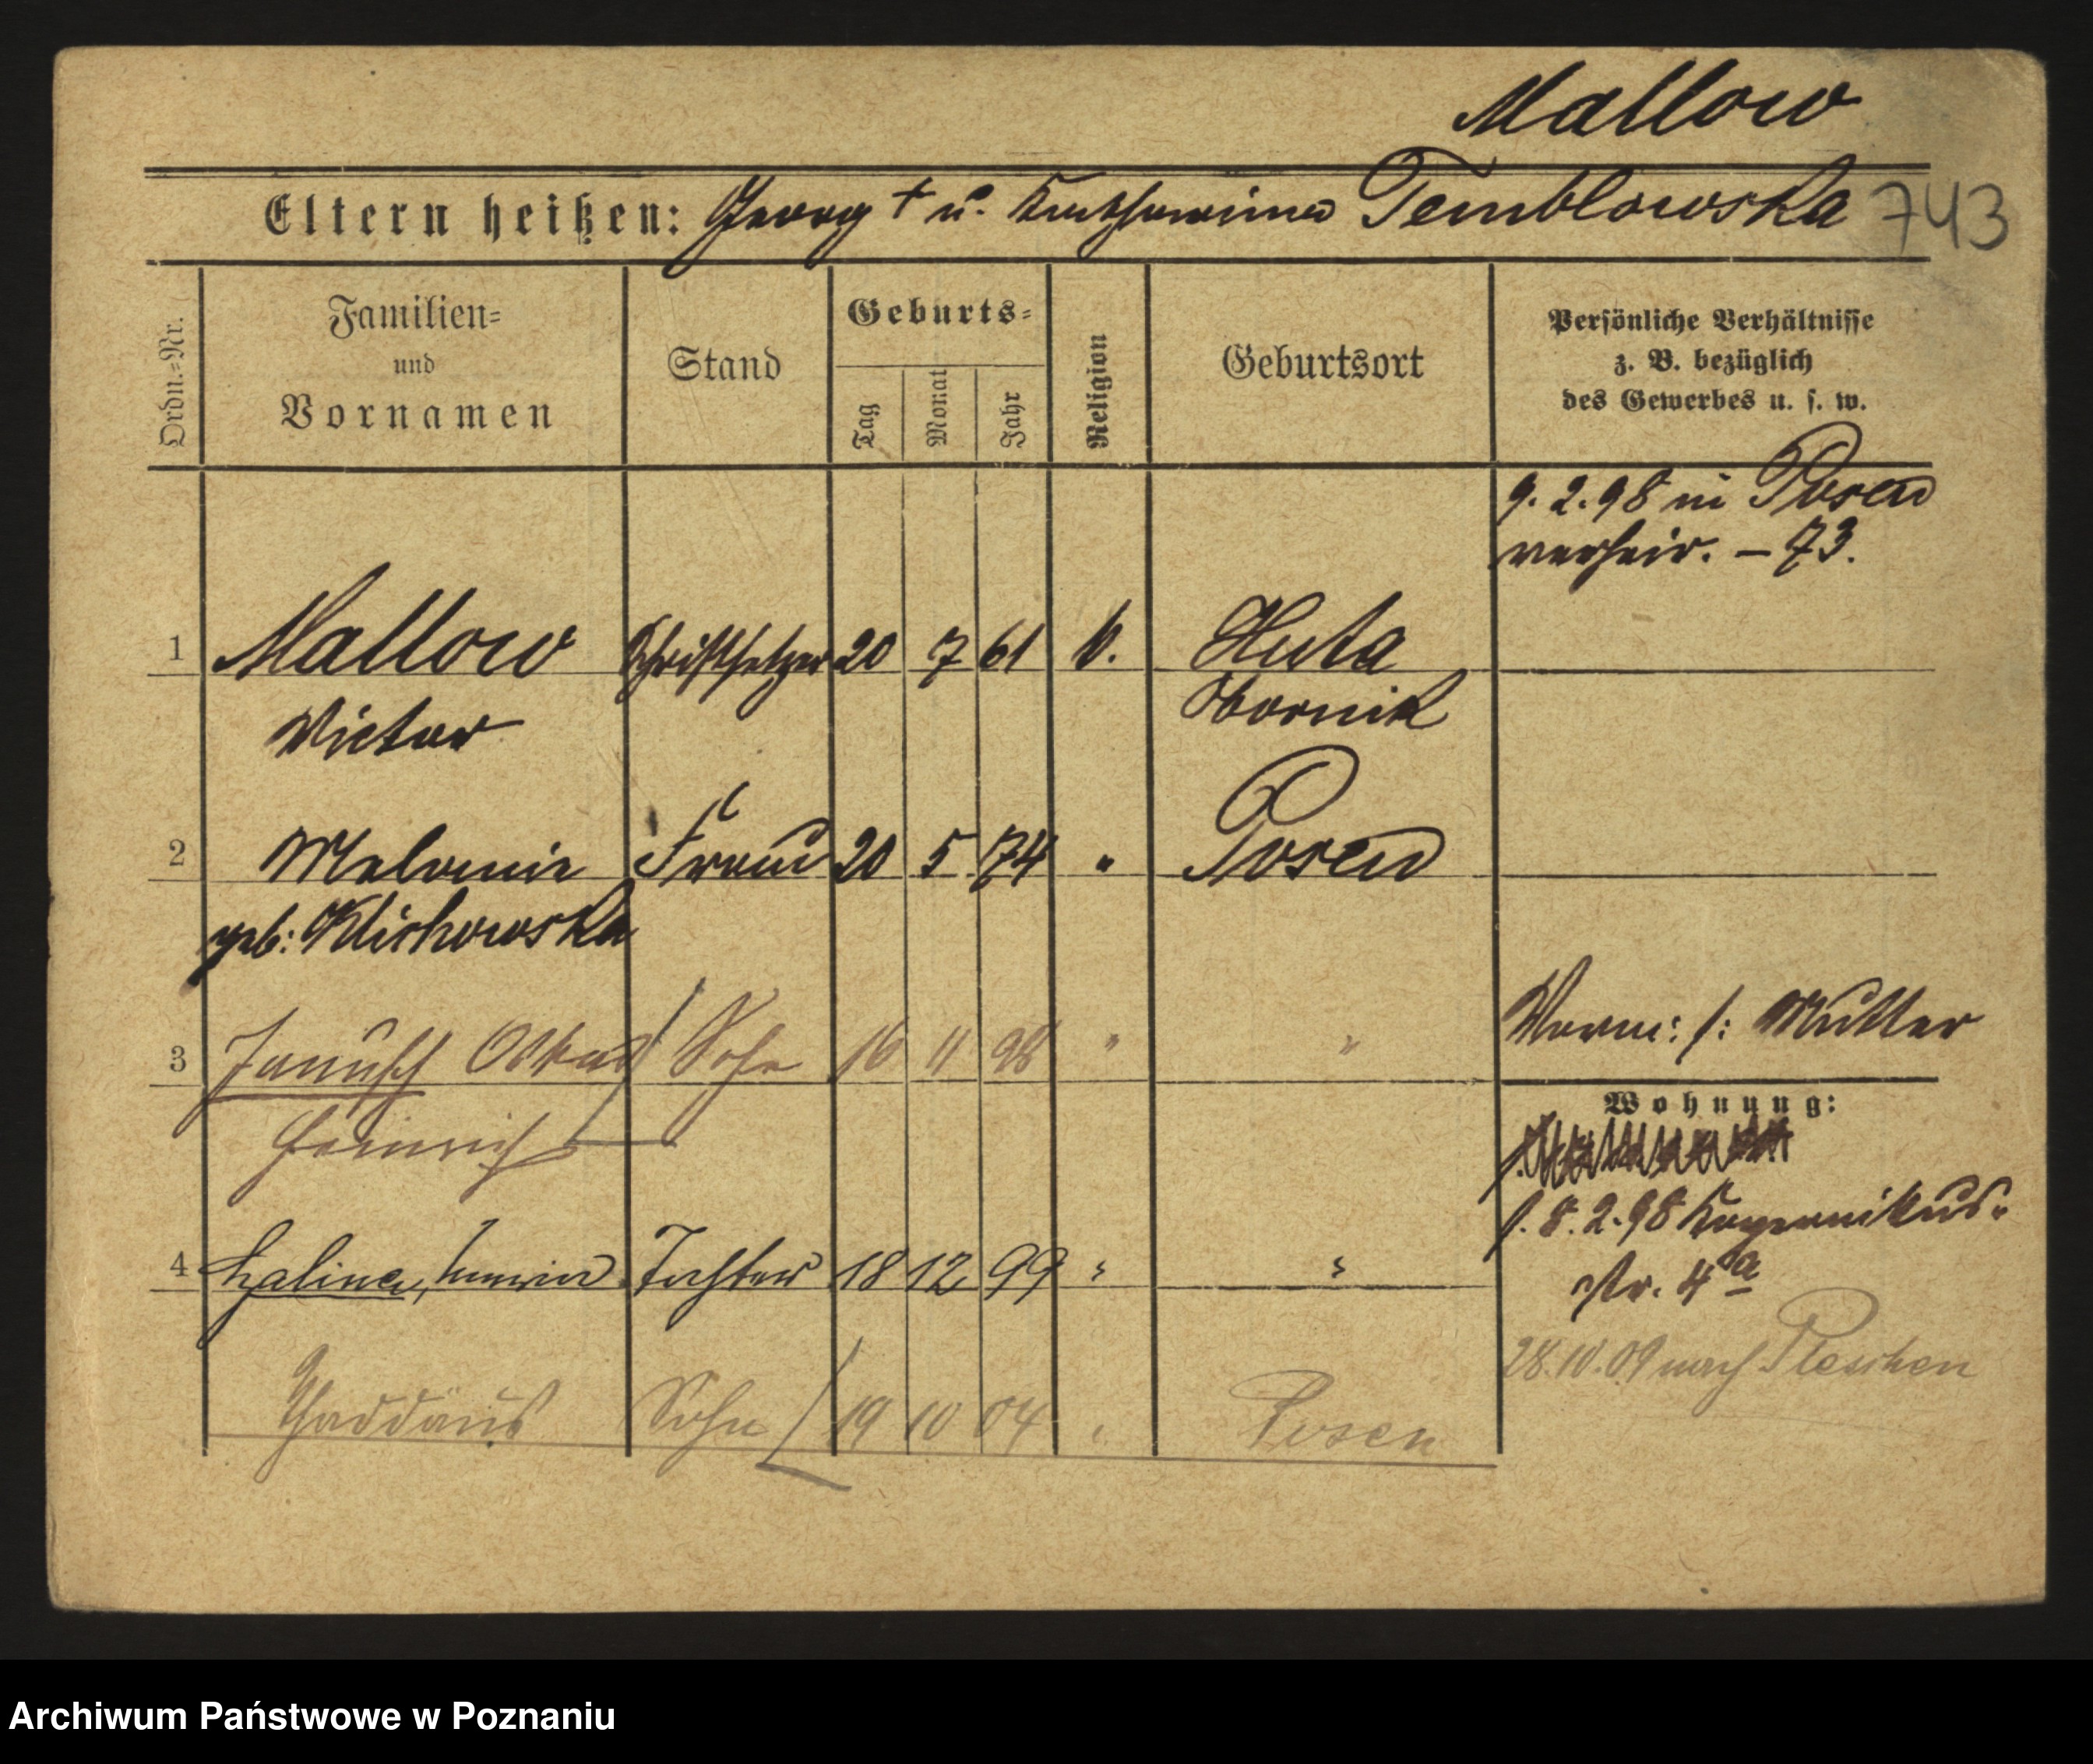 Mallow
Eltern heißen: Georg † u. Katharina Temblowska 743
Ordn.-Nr. Familien- und Vornamen Stand Geburts- Tag Monat Jahr Religion Geburtsort Persönliche Verhältnisse z. B. bezüglich des Gewerbes u. s. w.
9. 2. 98 in Posen
verheir. – 73.
1 Mallow Schriftsetzer 20 7 61 k. Huta
Victor Obornik
2 Melanie Frau 20 5 74 " Posen
geb: Klichowska
3 Janusch Oskar Sohn 16 11 98 " " Vorm: /: Mutter
Heinrich
Wohnung:
/. 8. 2. 98 Kopernikus-
4 Halina, Tochter 18 12 99 " "
str. 4a
28.10.09 nach Pleschen
Thaddäus Sohn 19 10 04 " Posen
Archiwum Państwowe w Poznaniu